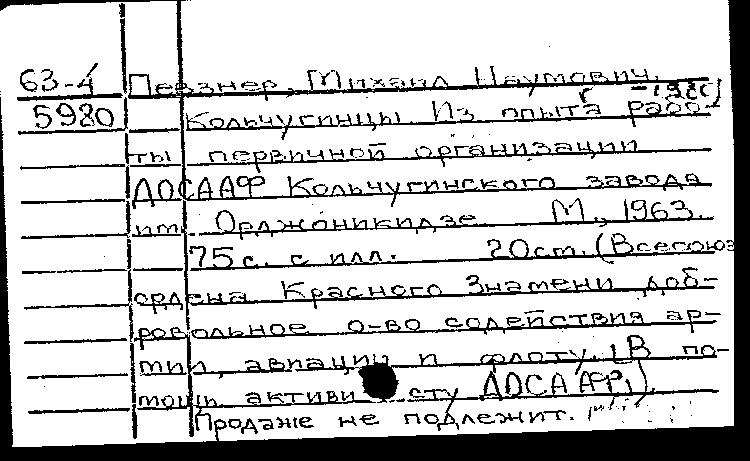 63-4 Певзнер, Михаил Наумович.
5980 Кольчугинцы. Из опыта рабо-
ты первичной организации
ДОСААФ Кольчугинского завода
им. Орджоникидзе М., 1963.
75с. с илл. 20см. (Всесоюз
ордена Красного Знамени доб-
ровольное о-во содействия ар-
мии, авиации и флоту. (В по-
мощь активисту ДОСААФ)
Продаже не подлежит.